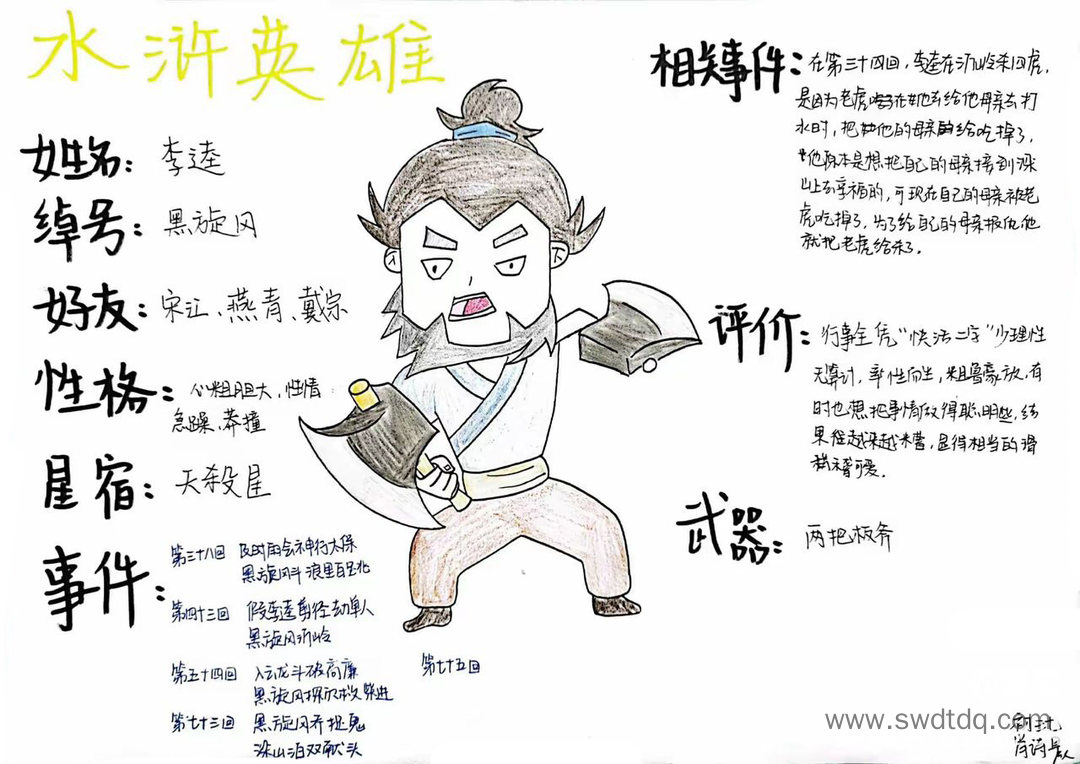 水浒英雄
姓名：李逵
绰号：黑旋风
好友：宋江、燕青、戴宗
性格：心粗胆大，性情
急躁、莽撞
星宿：天杀星
事件：
第三十八回 及时雨会神行太保
黑旋风斗浪里白条
第四十三回 假李逵剪径劫单人
黑旋风沂岭
第五十四回 入云龙斗破高廉
黑旋风探穴救柴进
第七十三回 黑旋风乔捉鬼
梁山泊双献头
第七十五回
相关事件：在第三十四回，李逵在沂岭杀四虎，
是因为老虎在他去给他母亲去打
水时，把他的母亲给吃掉了，
他原本是想把自己的母亲接到梁
山上去享福的，可现在自己的母亲被老
虎吃掉了，为了给自己的母亲报仇他
就把老虎给杀了。
评价：行事全凭“快活二字”少理性
无算计，率性而生，粗鲁豪放，有
时也想把事情做得聪明些，结
果往越深越糟，显得相当的滑
稽可爱。
武器：两把板斧
www.swdtdq.com